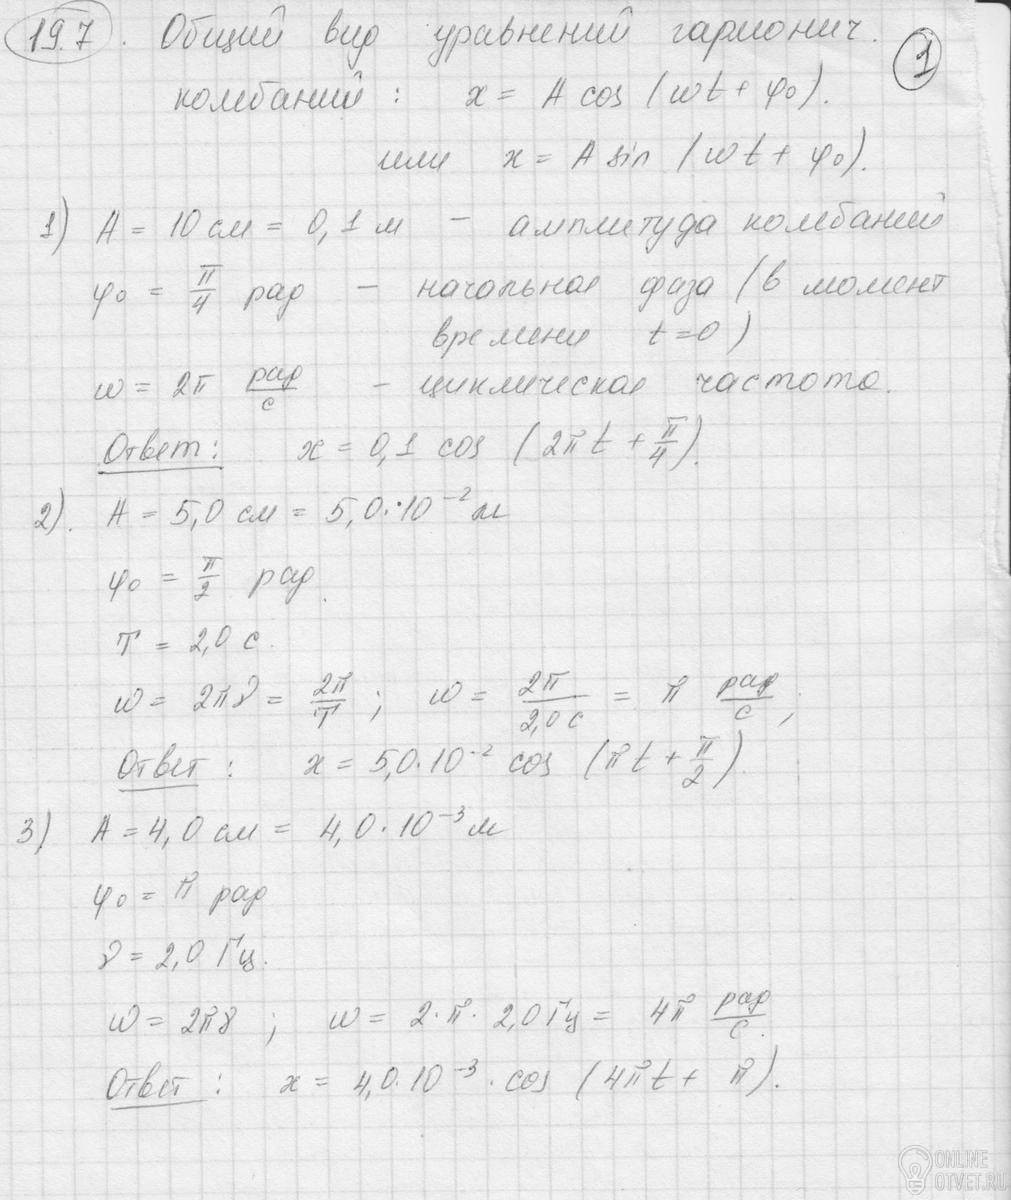 19.7. Общий вид уравнений гармонич.
1
колебаний: x = A cos (ωt + φ₀).
или x = A sin (ωt + φ₀).
1) A = 10 см = 0,1 м — амплитуда колебаний
φ₀ = π/4 рад — начальная фаза (в момент
времени t=0)
ω = 2π рад/с — циклическая частота.
Ответ: x = 0,1 cos (2πt + π/4).
2). A = 5,0 см = 5,0·10⁻² м
φ₀ = π/2 рад.
T = 2,0 с.
ω = 2πν = 2π/T ; ω = 2π/2,0 с = π рад/с ;
Ответ: x = 5,0·10⁻² cos (πt + π/2).
3) A = 4,0 см = 4,0·10⁻³ м
φ₀ = π рад
ν = 2,0 Гц.
ω = 2πν ; ω = 2·π·2,0 Гц = 4π рад/с.
Ответ: x = 4,0·10⁻³·cos (4πt + π).
ONLINE
OTVET.RU